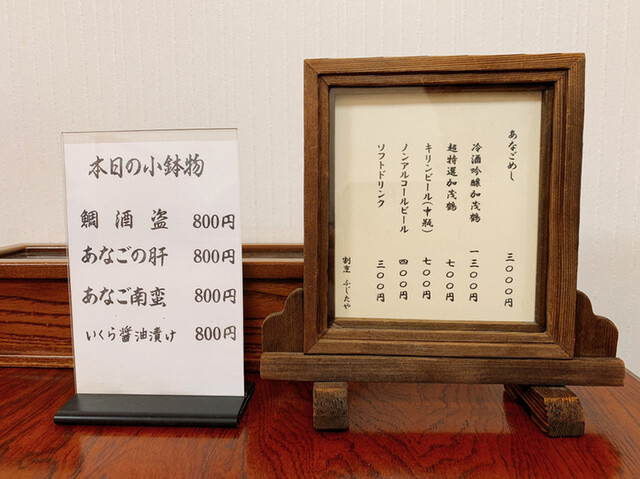 本日の小鉢物
鯛酒盗 800円
あなごの肝 800円
あなご南蛮 800円
いくら醤油漬け 800円
あなごめし 三〇〇〇円
冷酒吟醸加茂鶴 一三〇〇円
超特選加茂鶴 七〇〇円
キリンビール(中瓶) 七〇〇円
ノンアルコールビール 四〇〇円
ソフトドリンク 三〇〇円
割烹 ふじたや